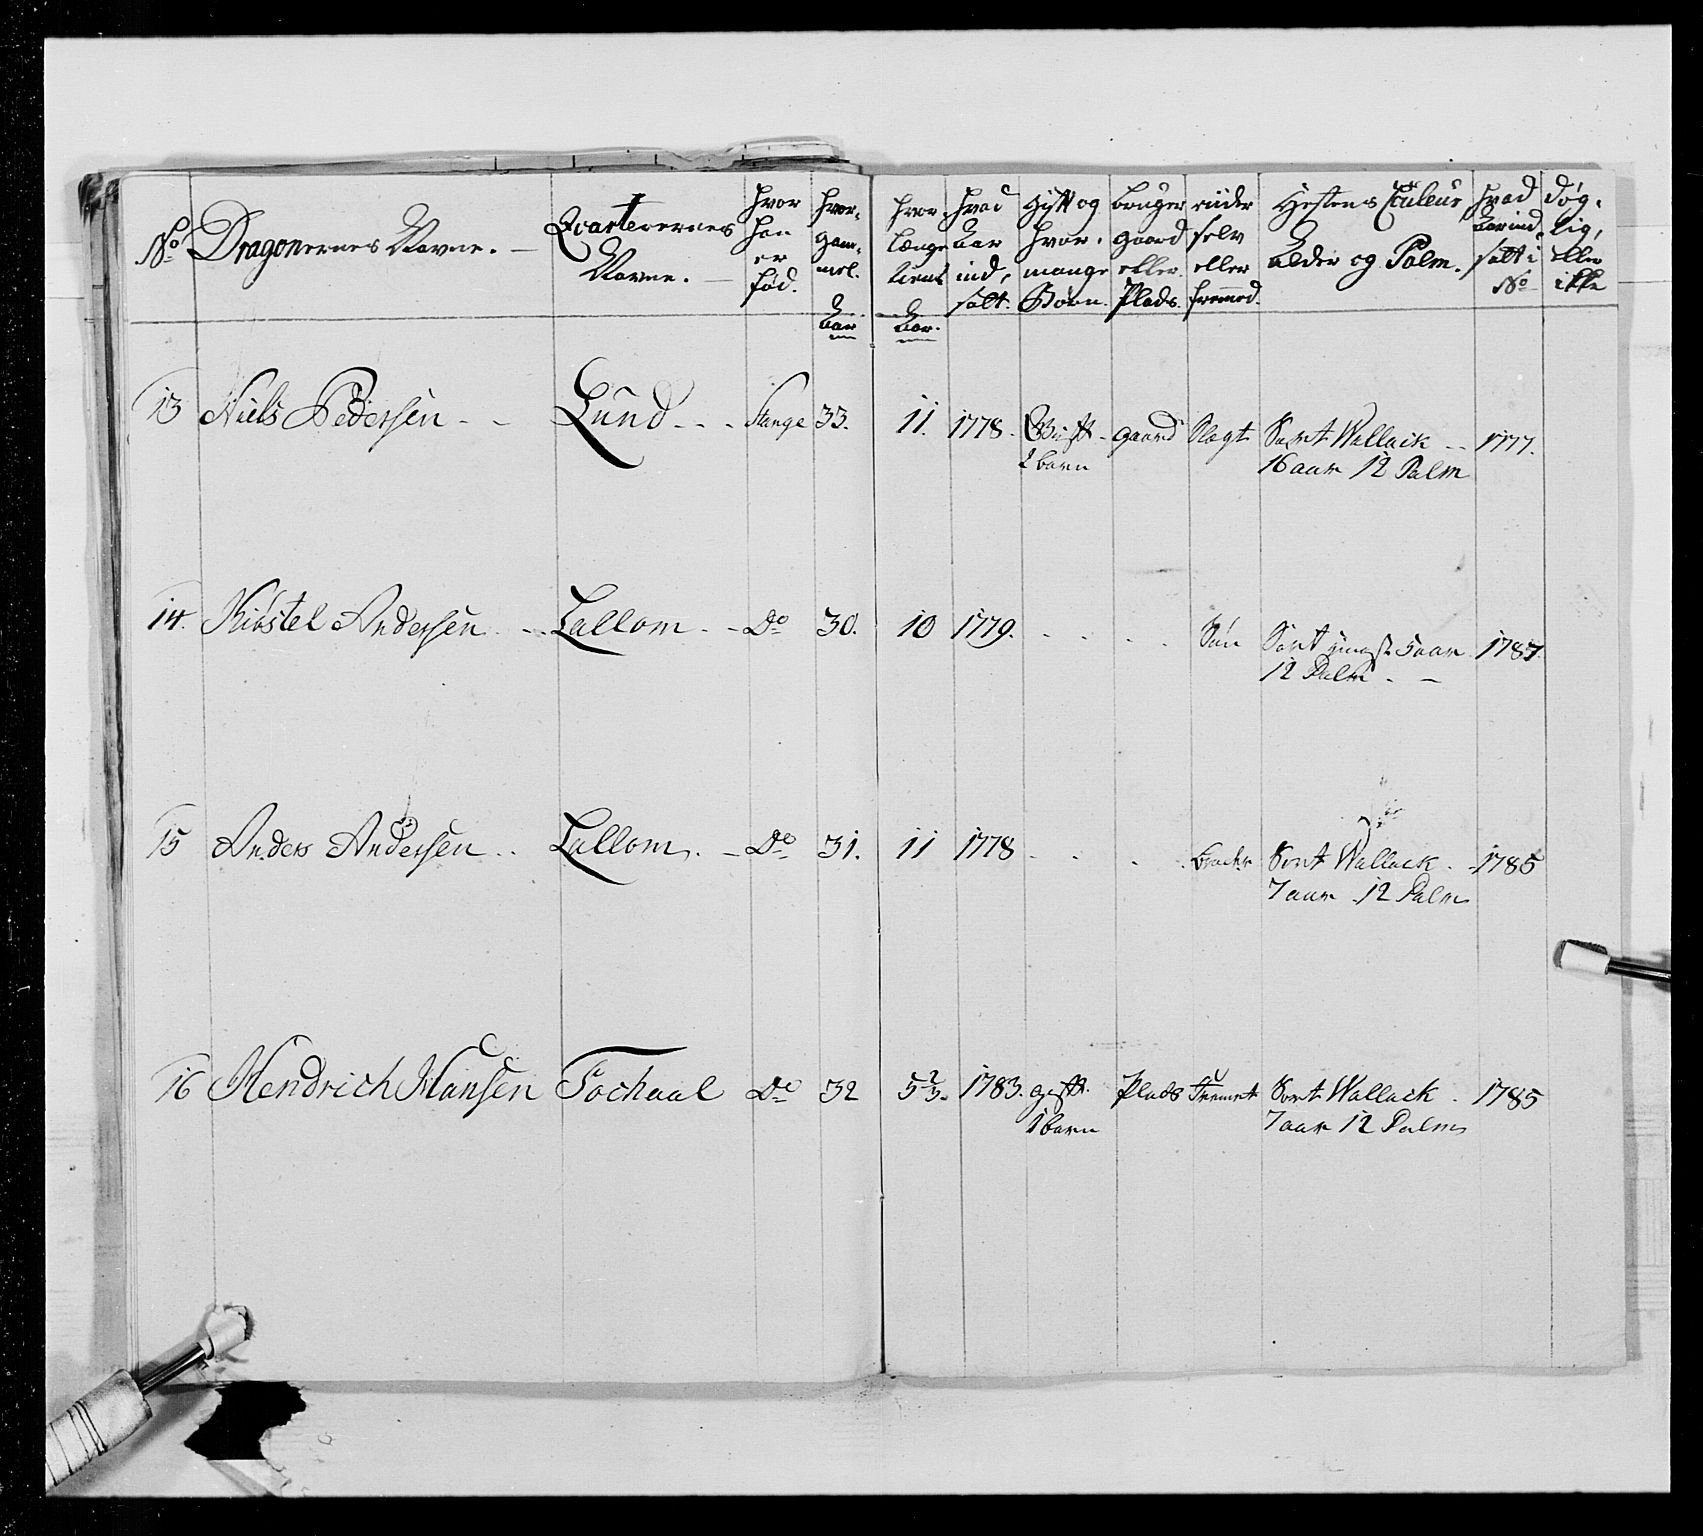 No
Dragonernes Navne. —
Qvarterernes
Navne. —
hvor
han
er
fød.
hvor-
gam-
mel.
Aar
hvor
længe
tient
Aar.
hvad
Aar
ind,
salt.
Gift og
hvor-
mange
Børn.
bruger
gaard
eller
Plads.
riider
selv
eller
fremmed.
Hestens Couleur
Alder og Palm.
hvad
Aar ind,
salt i
No
døg-
tig,
eller
ikke
13 Niels Pedersen - - Lund - - - Stange 33. 11. 1778. Gift - gaard Slegt Sort Wallack - - 1777.
2 barn 16 aar 12 Palm
14. Kiøstel Andersen - - Lallom - - Do 30. 10 1779. - - - - Søn Sort hingst 5 aar 1787.
12 Palm - -
15 Anders Andersen - - Lallom. - Do 31. 11 1778 - - - - Broder Sort Wallack - - 1785
7 aar 12 Palm
16 Hendrich Hansen Tochaal Do 32 5 2/3. 1783. gift. Plads Fremet Sort Wallack - 1785
1 barn 7 aar 12 Palm